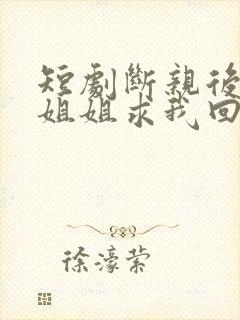 短劇斷親後
姐姐求我回
徐濠縈